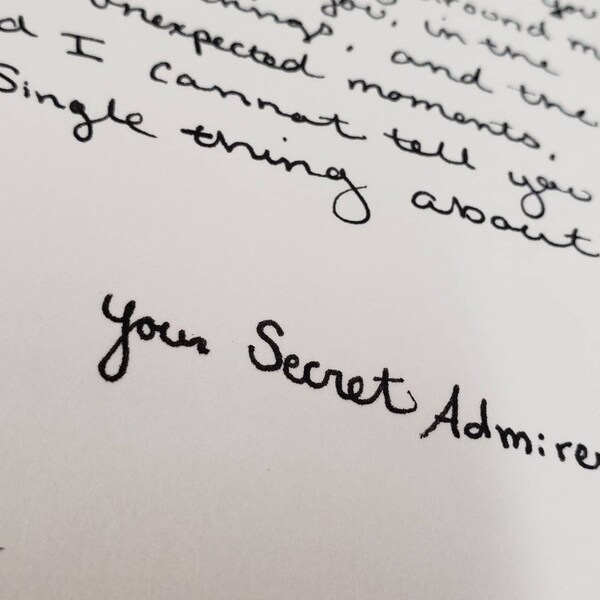 around m you
things, you, in the
unexpected moments, and the
d I cannot tell you
Single thing about
your Secret Admirer